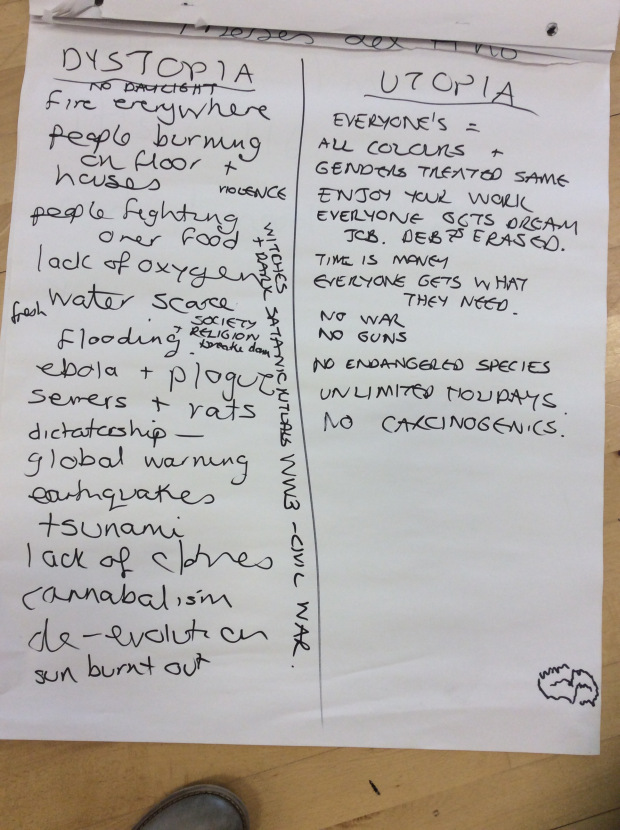 DYSTOPIA
NO DAYLIGHT
fire everywhere
people burning
on floor +
houses
VIOLENCE
people fighting
over food
lack of oxygen
fresh water scarce
flooding.
SOCIETY
+ RELIGION
breake down
ebola + plague
sewers + rats
dictatorship —
global warning
earthquakes
tsunami
lack of clothes
cannabalism
de-evolution
sun burnt out
WITCHES
+ DARK SATANIC RITUALS WW3 - CIVIL WAR.
UTOPIA
EVERYONE'S =
ALL COLOURS +
GENDERS TREATED SAME
ENJOY YOUR WORK
EVERYONE GETS DREAM
JOB. DEBTS ERASED.
TIME IS MONEY
EVERYONE GETS WHAT
THEY NEED.
NO WAR
NO GUNS
NO ENDANGERED SPECIES
UNLIMITED HOLIDAYS.
NO CARCINOGENICS.